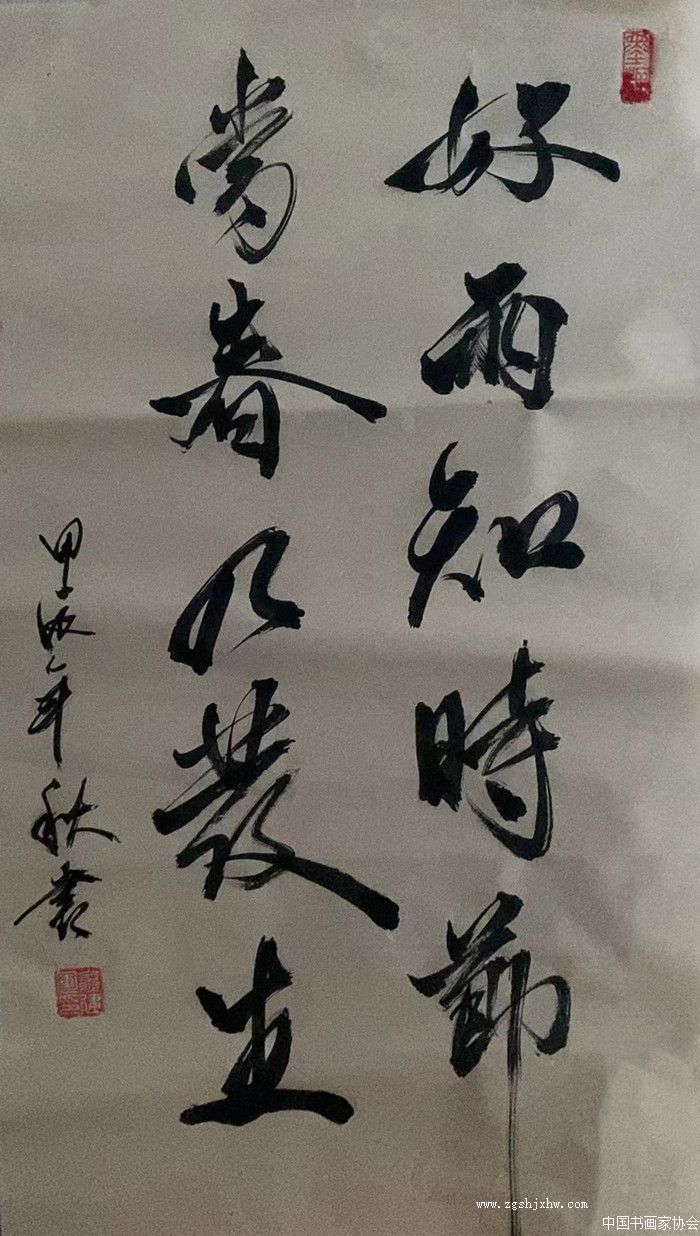 好雨知時節
當春乃發生
甲辰年秋書
www.zgshjxhw.com
中国书画家协会